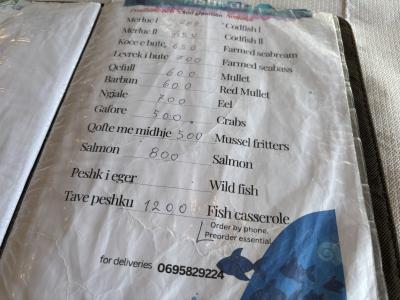 Merluc I Codfish I
Merluc II Codfish II
Koce e bute, 650 Farmed seabream
Levrek i bute 700 Farmed seabass
Qefull 600 Mullet
Barbun 600 Red Mullet
Ngjale 700 Eel
Gafore 500 Crabs
Qofte me midhje 500 Mussel fritters
Salmon 800 Salmon
Peshk i eger Wild fish
Tave peshku 1200 Fish casserole
Order by phone,
Preorder essential
for deliveries 0695829224